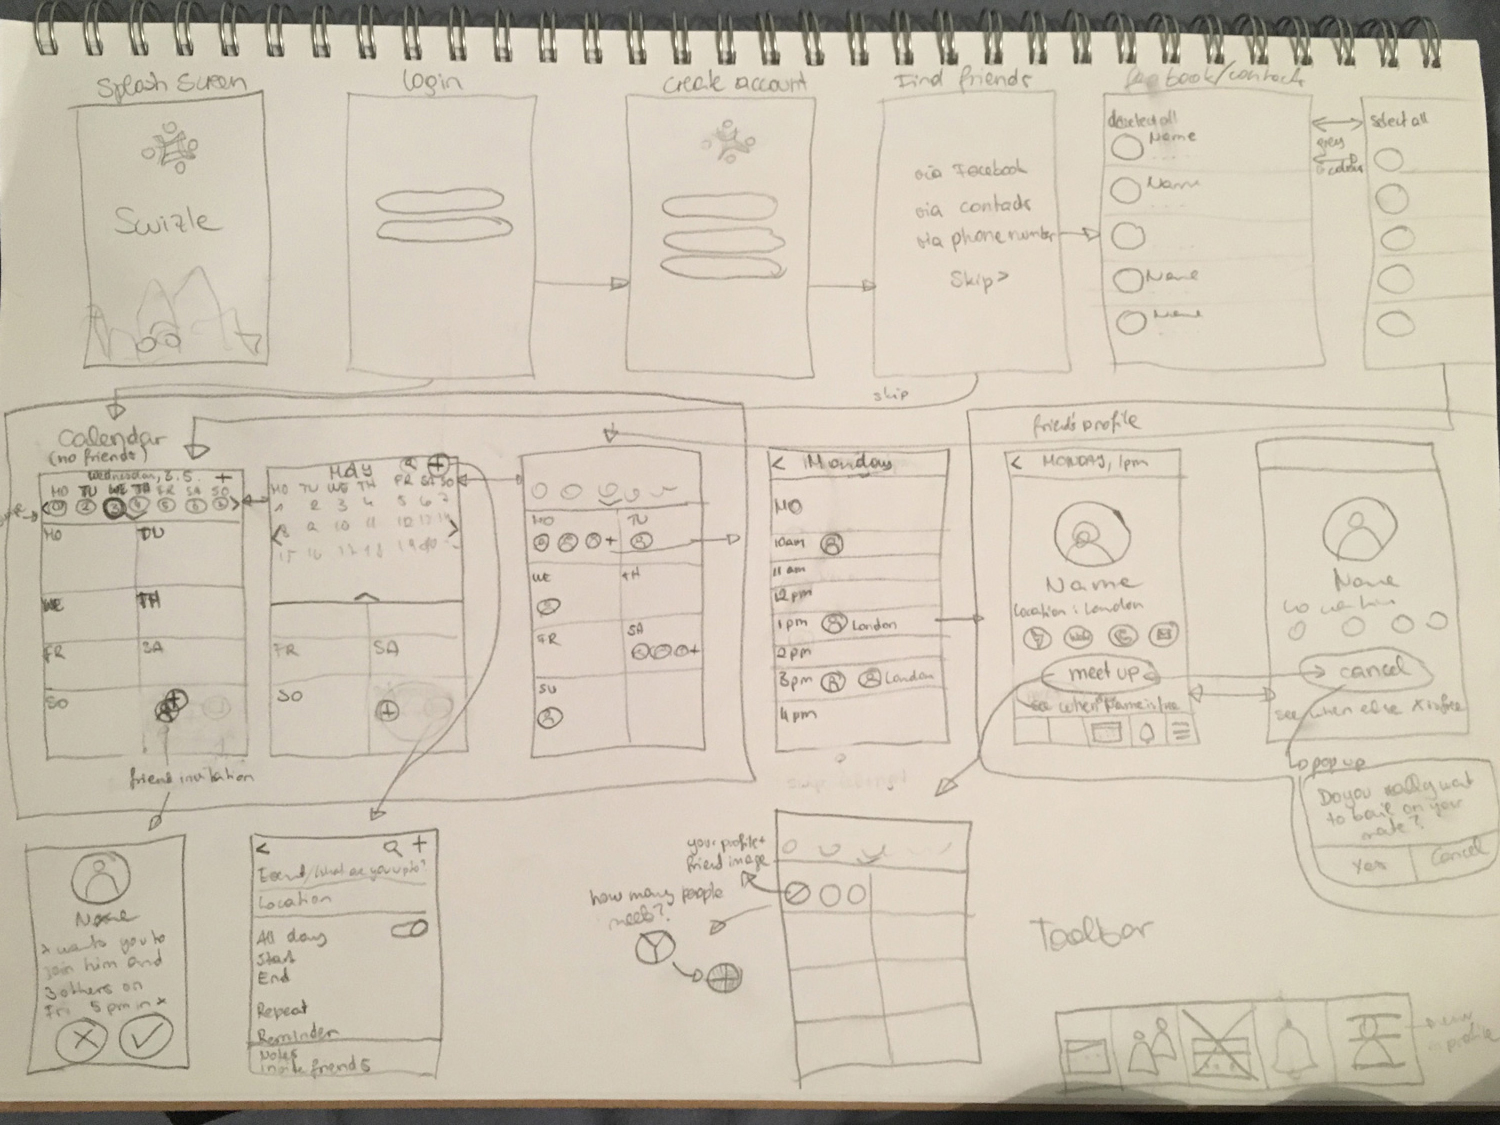 Splash Screen
Login
Create account
Find friends
facebook/contacts
Swizle
via Facebook
via contacts
via phone number
Skip>
deselect all
Name
Name
Name
Name
grey
select all
skip
Calendar
(no friends)
Wednesday, 3.5. +
MO TU WE TH FR SA SO
MO TU
WE TH
FR SA
SO
friend invitation
May
MO TU WE TH FR SA SO
1 2 3 4 5 6 7
8 9 10 11 12 13 14
15 16 17 18 19 20
FR SA
SO
MO TU
WE TH
FR SA
SU
< Monday
MO
10am
11am
12pm
1pm London
2pm
3pm London
4pm
friend's profile
< MONDAY, 1pm
Name
Location: London
meet up
see when Name is free
Name
cancel
see when else X is free
pop up
Do you really want
to bail on your
mate?
Yes Cancel
Name
x wants you to
join him and
3 others on
Fri 5pm in x
< +
Event/What are you upto?
Location
All day
Start
End
Repeat
Reminder
Notes
invite friends
your profile+
friend image
how many people
Toolbar